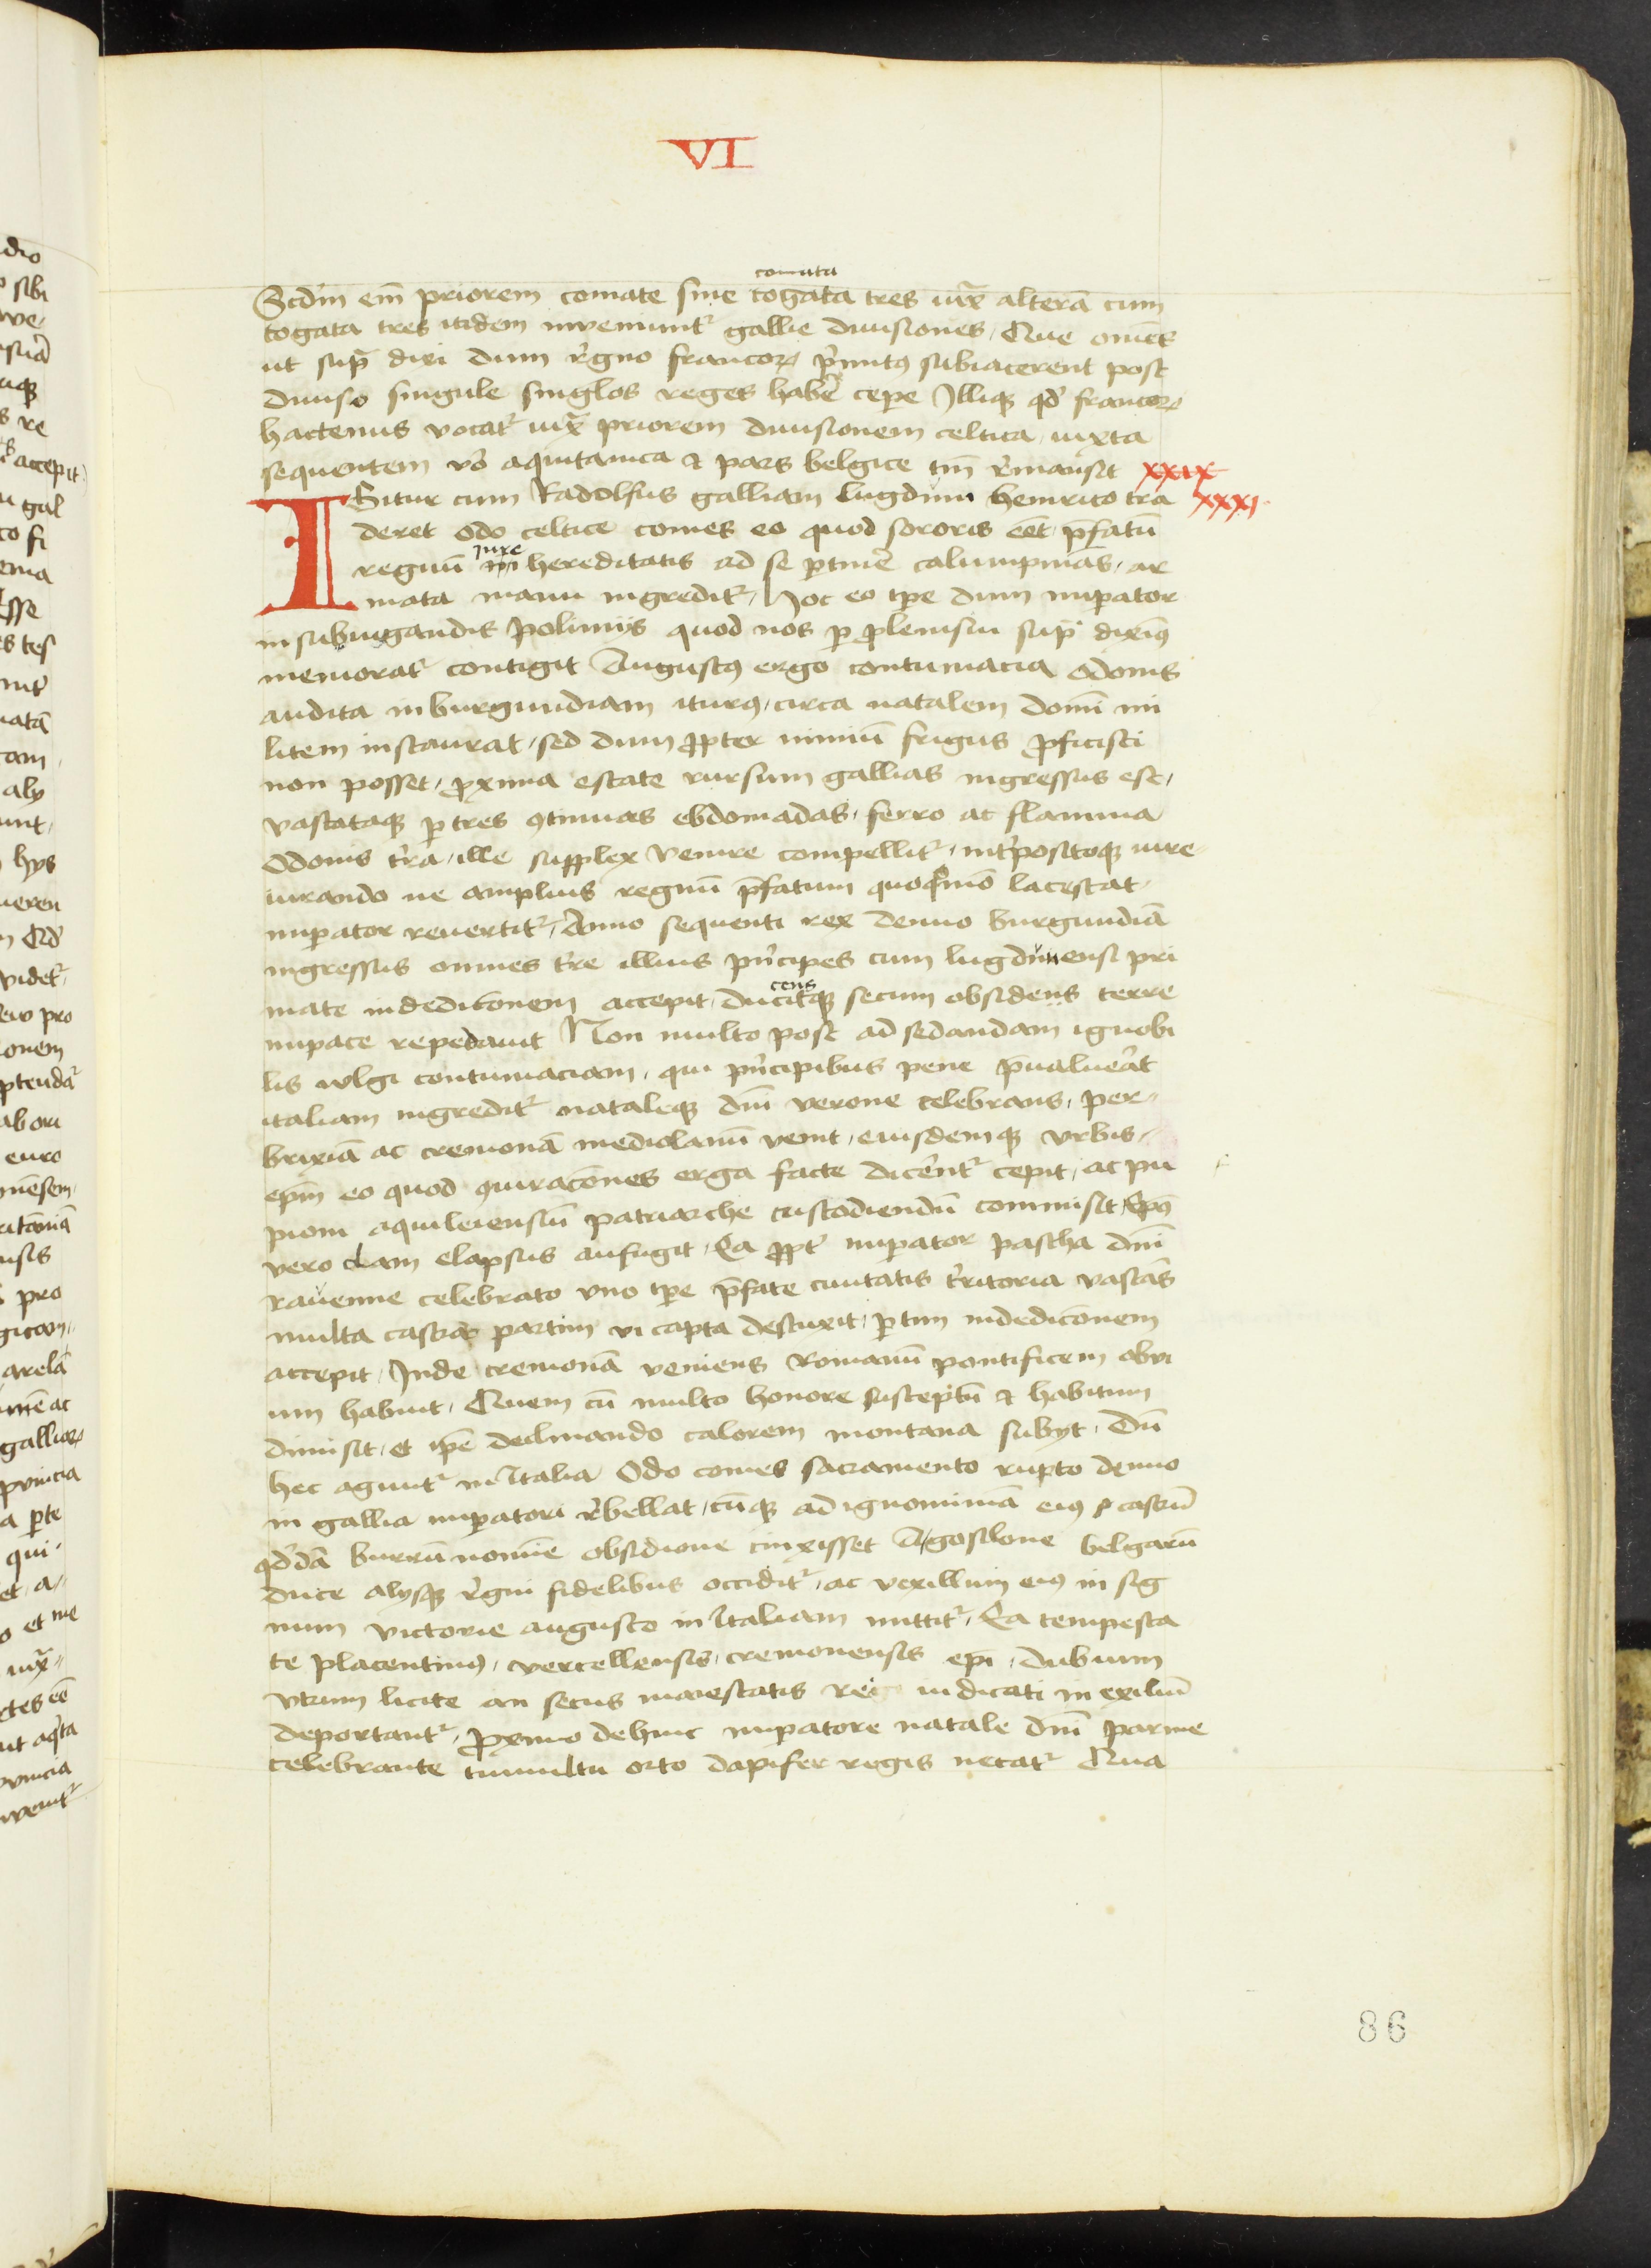 VI
comata
Scdm em̄ priorem comate sine togata tres iuxͣ alterā cum
togata tres itidem inveniunt᷑ gallie diuisiones, Que om̄es
ut supͣ dixi dum r̓gno francoꝝ p̓mitꝯ subiacerent post
diuiso singule singlos reges habē cepe Illiqꝫ qd̓ francoꝝ
hactenus vocat᷑ iuxͣ priorem diuisionem celtica, iuxta
sequentem vo̓ aquitanica ⁊ pars belgice tm̄ r̓mansit XXIX
Igitur cum Radolfus galliam lugduni heinrico tra XXXI.
deret odo celtice comes eo quod sororis eēt p̄fatū
Jure
regnū hereditatis ad se ꝑtinē calumpnias, ar
mata manu ingredit᷑, Hoc eo tꝑe dum imꝑator
in subiugandis polimijs quod nos ꝑ plenisiu supͣ dixīꝯ
memorat᷑ contigit Augustꝯ ergo contumacia odonis
audita in burgundiam iturꝯ, circa natalem domī mi
litem instaurat, sed dum ꝓpter nimiū frigus ꝓficisci
non posset, ꝓxima estate rursum gallias ingressus est,
vastataqꝫ ꝑ tres ꝯtinuas ebdomadas, ferro ac flamma
Odonis t̓ra, ille supplex venire compellit᷑, int̓positoqꝫ iure
iurando ne amplius regnū p̄fatum quoqͦmō lacescat,
imꝑator reuertit᷑, Anno sequenti rex denuo burgundiā
ingressus omnes t̓re illius pn̓cipes cum lugdunensi pri
cens
mate in dedic̄onem accepit, ducitqꝫ secum obsidens terre
in pace repedauit Non multo post ad sedandam ignobi
lis wlgi contumaciam, qui pn̓cipibus pene p̄ualuer̄at
italiam ingredit᷑ nataleqꝫ dn̄i verone celebrans, per
brixiā ac cremonā mediolanū venit, eiusdemqꝫ vrbis
epm̄ eo quod ꝯiurac̄ones erga facte dicer̄nt᷑ cepit, ac pii
piom aquileiensiū patriarche custodiendū commisit, Ep̄s
vero clam elapsus aufugit, Ea ꝓpt̓ imꝑator pascha dn̄i
rauenne celebrato vno tꝑe p̄fate ciuitatis t̓ritoria vastās
multa castra partim vi capta destuxit, ꝑtim in dedic̄onem
accepit, Inde cremonā veniens Romanū pontificem obvi
um habuit, Quem cū multo honore susceptū ⁊ habitum
dimisit, et ip̄e declinando calorem montana subyt, Dū
hec agunt᷑ in Italia Odo comes sacramento rupto denuo
in gallia imꝑatori r̓bellat, cūqꝫ ad ignominiā eiꝯ castrū
qd̓dā burrū nomīe obsidione cinxisset A gosilone belgarū
duce alysqꝫ r̓gni fidelibus occidit᷑, ac vexillum eiꝯ in sig
num victorie augusto in Italiam mittit᷑, Ea tempesta
te placentinꝯ, vercellensis, cremonensis epī, dubium
vtrum licite an secus maiestatis rei iudicati in exiliū
deportant᷑, ꝓximo dehinc imꝑatore natale dn̄i parme
celebrante tumultu orto dapifer regis necat᷑ Qua
86